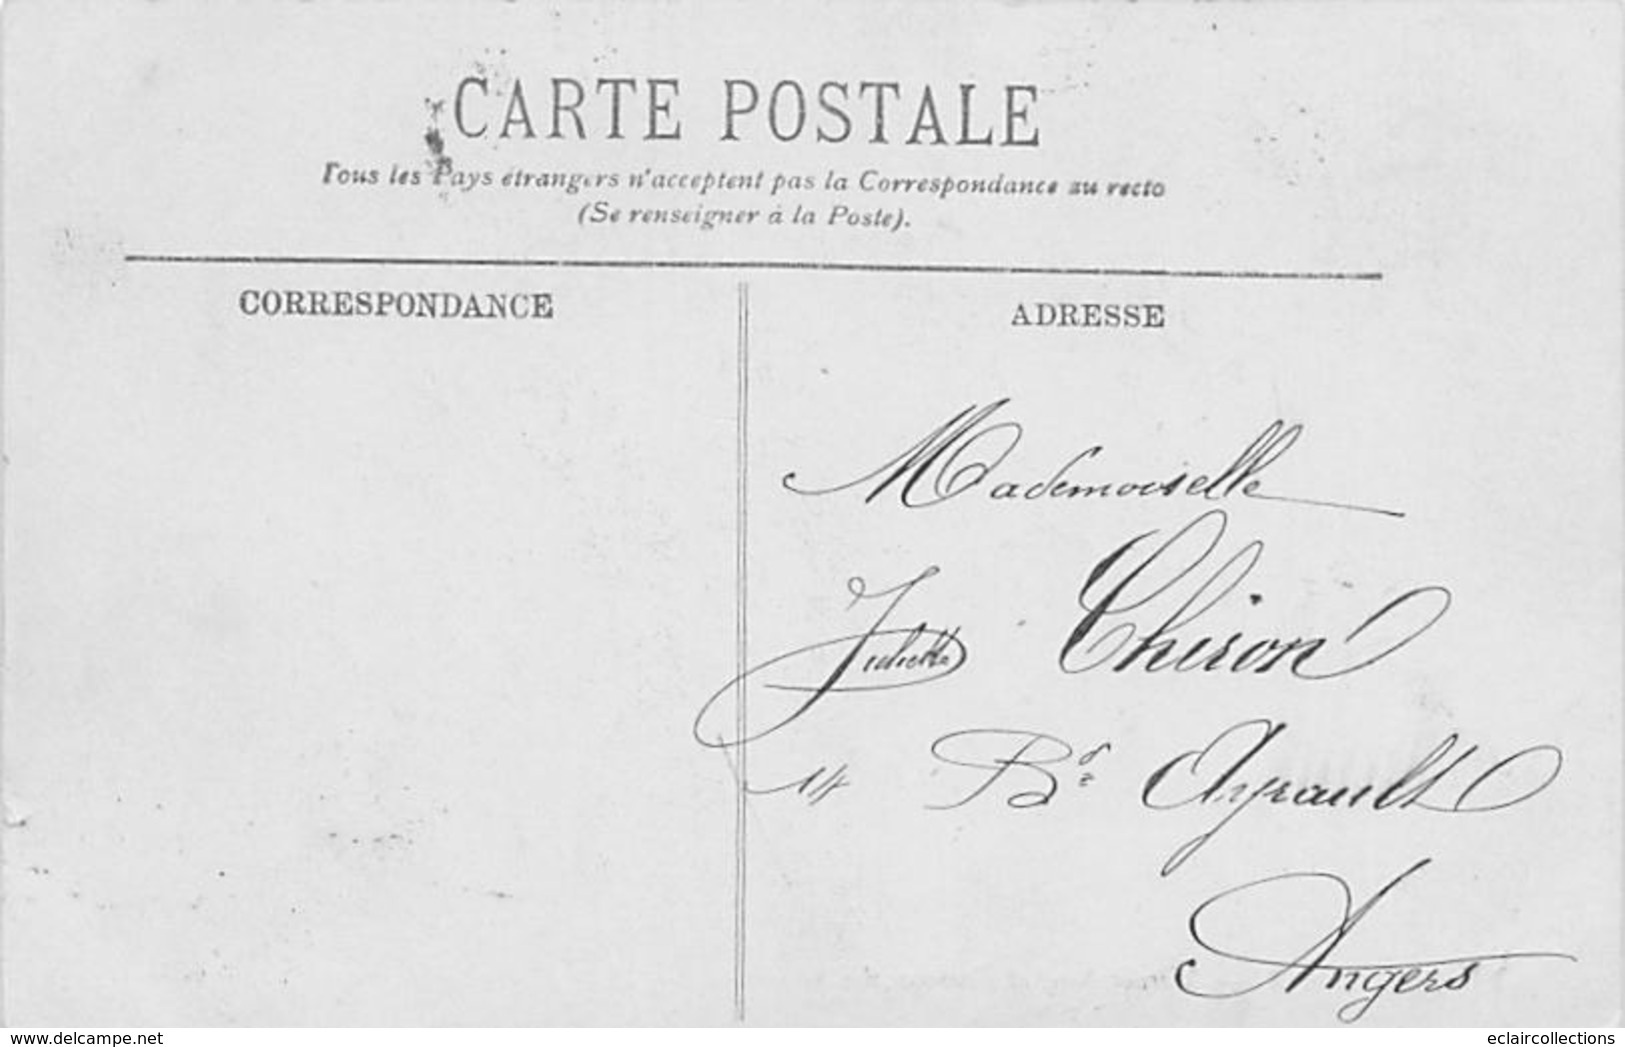 CARTE POSTALE
Tous les Pays étrangers n'acceptent pas la Correspondance au recto
(Se renseigner à la Poste).
CORRESPONDANCE
ADRESSE
Mademoiselle
Juliette Chiron
14 Bd Ayrault
Angers
www.delcampe.net
eclaircollections